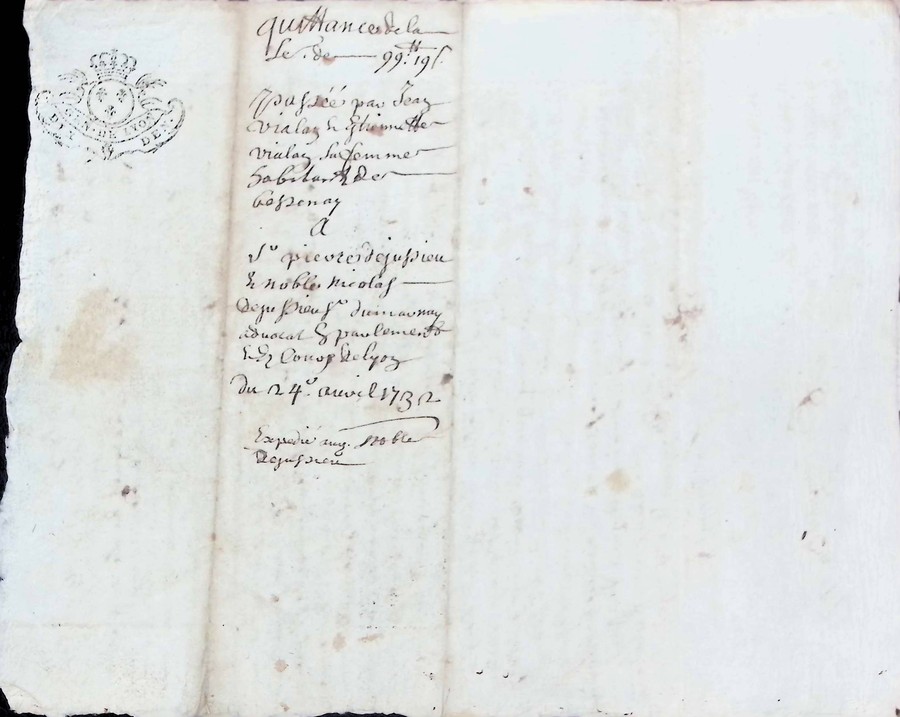 GEN. DE LYON
DIX DE
quittance de la
Se. de 99tt 19s.
passée par Jean
vialay & Ethiennette
vialay sa femme
habitants de
bessenay
A
Sr. pierre dejussieu
& noble Nicolas
dejussieu Sr. dumarnay
advocat En parlement
& Es Cours de lyon
du 24e. avril 1732
Expedié aud. noble
dejussieu